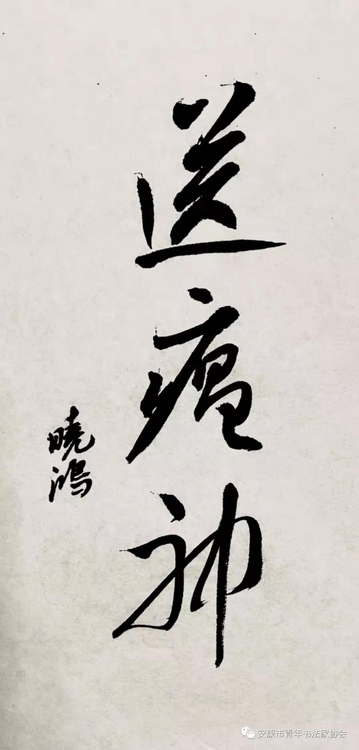 送瘟神
曉鴻
安康市青年书法家协会